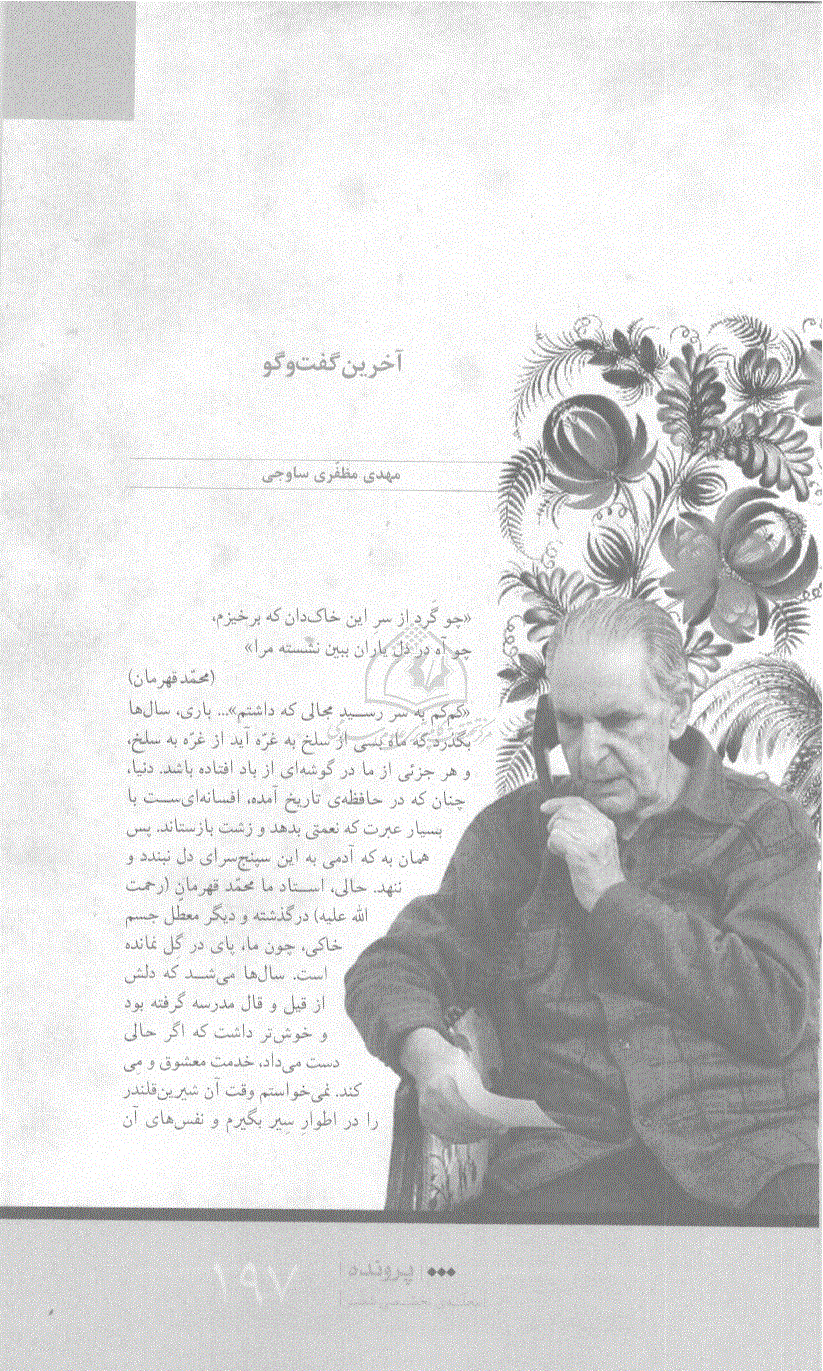 آخرین گفت‌وگو
مهدی مظفّری ساوجی
«چو گَرد از سر این خاک‌دان که برخیزم،
چو آه در دل یاران ببین نشسته مرا»
(محمّد قهرمان)
«کم‌کم به سر رسـید مجالی که داشتم»... باری، سال‌ها
بگذرد که ماه بسی از سلخ به غرّه آید از غرّه به سلخ،
و هر جزئی از ما در گوشه‌ای از باد افتاده باشد. دنیا،
چنان که در حافظه‌ی تاریخ آمده، افسانه‌ای‌ست با
بسیار عبرت که نعمتی بدهد و زشت بازستاند. پس
همان به که آدمی به این سپنج‌سرای دل نبندد و
ننهد. حالی، استاد ما محمّد قهرمان (رحمت
الله علیه) درگذشته و دیگر معطل جسم
خاکی، چون ما، پای در گل نمانده
است. سال‌ها می‌شد که دلش
از قیل و قال مدرسه گرفته بود
و خوش‌تر داشت که اگر حالی
دست می‌داد، خدمت معشوق و مِی
کند. نمی‌خواستم وقت آن شیرین‌قلندر
را در اطوارِ سِیر بگیرم و نفس‌های آن
پرونده
۱۹۷